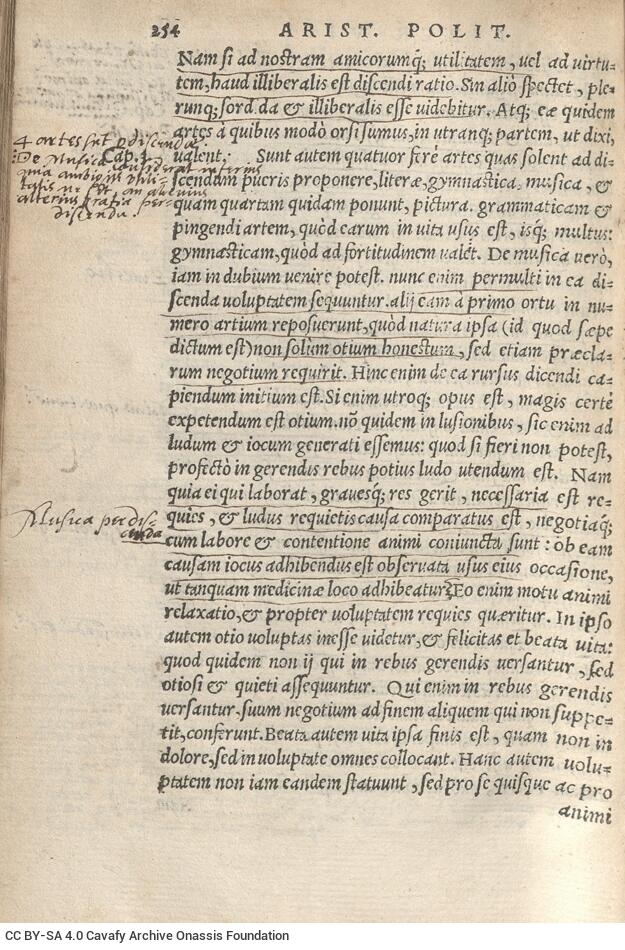 254 ARIST. POLIT.
Nam si ad nostram amicorumq; utilitatem, uel ad uirtu=
tem, haud illiberalis est discendi ratio. Sin aliò spectet, ple=
runq; sord.da & illiberalis esse uidebitur. Atq; eæ quidem
artes à quibus modò orsi sumus, in utranq; partem, ut dixi,
Cap. 3. ualent. Sunt autem quatuor ferè artes quas solent ad di=
scendum pueris proponere, literæ, gymnastica, musica, &
quam quartam quidam ponunt, pictura. grammaticam &
pingendi artem, quòd earum in uita usus est, isq; multus:
gymnasticam, quòd ad fortitudinem ualet. De musica uerò,
iam in dubium uenire potest. nunc enim permulti in ea di=
scenda uoluptatem sequuntur. alij eam à primo ortu in nu=
mero artium reposuerunt, quòd natura ipsa (id quod sæpe
dictum est) non solùm otium honestum, sed etiam præcla=
rum negotium requirit. Hinc enim de ea rursus dicendi ca=
piendum initium est. Si enim utroq; opus est, magis certè
expetendum est otium. nō quidem in lusionibus, sic enim ad
ludum & iocum generati essemus: quod si fieri non potest,
profectò in gerendis rebus potius ludo utendum est. Nam
quia ei qui laborat, grauesq; res gerit, necessaria est re=
quies, & ludus requietis causa comparatus est, negotiaq;
cum labore & contentione animi coniuncta sunt: ob eam
causam iocus adhibendus est obseruata usus eius occasione,
ut tanquam medicinæ loco adhibeatur. Eo enim motu animi
relaxatio, & propter uoluptatem requies quæritur. In ipso
autem otio uoluptas inesse uidetur, & felicitas et beata uita:
quod quidem non ij qui in rebus gerendis uersantur, sed
otiosi & quieti assequuntur. Qui enim in rebus gerendis
uersantur, suum negotium ad finem aliquem qui non suppe=
tit, conferunt. Beata autem uita ipsa finis est, quam non in
dolore, sed in uoluptate omnes collocant. Hanc autem uolu=
ptatem non iam eandem statuunt, sed pro se quisque ac pro
animi
4 artes
De Musica
alterius gratia per=
discenda.
Musica perdis=
cenda
CC BY-SA 4.0 Cavafy Archive Onassis Foundation